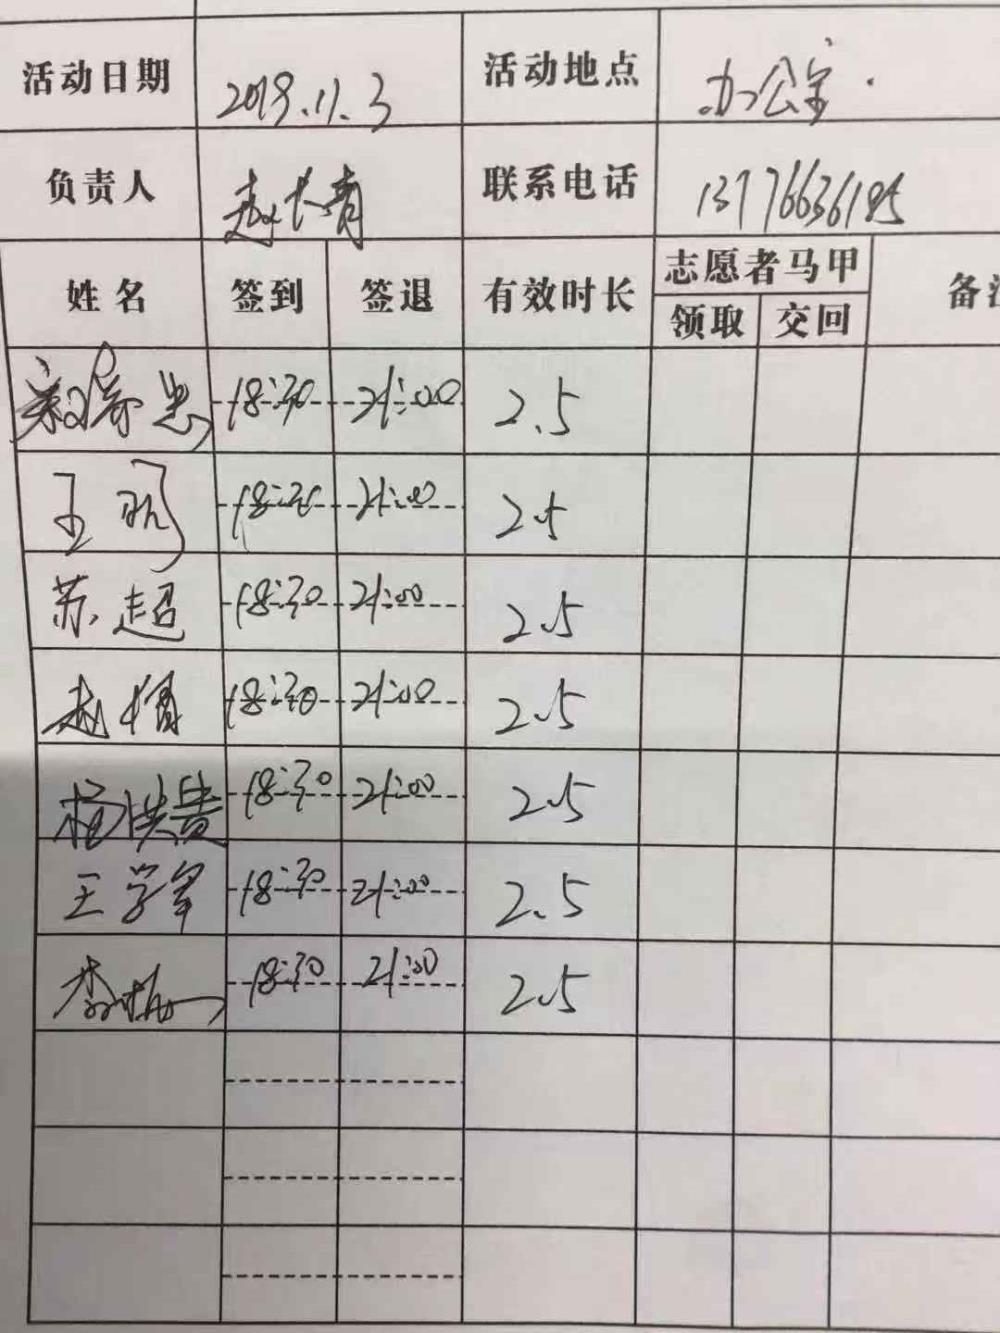 活动日期 2019.11.3 活动地点 办公室.
负责人 赵长青 联系电话 13776636195
志愿者马甲
姓名 签到 签退 有效时长 领取 交回 备
18:30 21:00 2.5
王 18:30 21:00 2.5
苏超 18:30 21:00 2.5
赵倩 18:30 21:00 2.5
杨洪贵 18:30 21:00 2.5
王学军 18:30 21:00 2.5
李梅 18:30 21:00 2.5